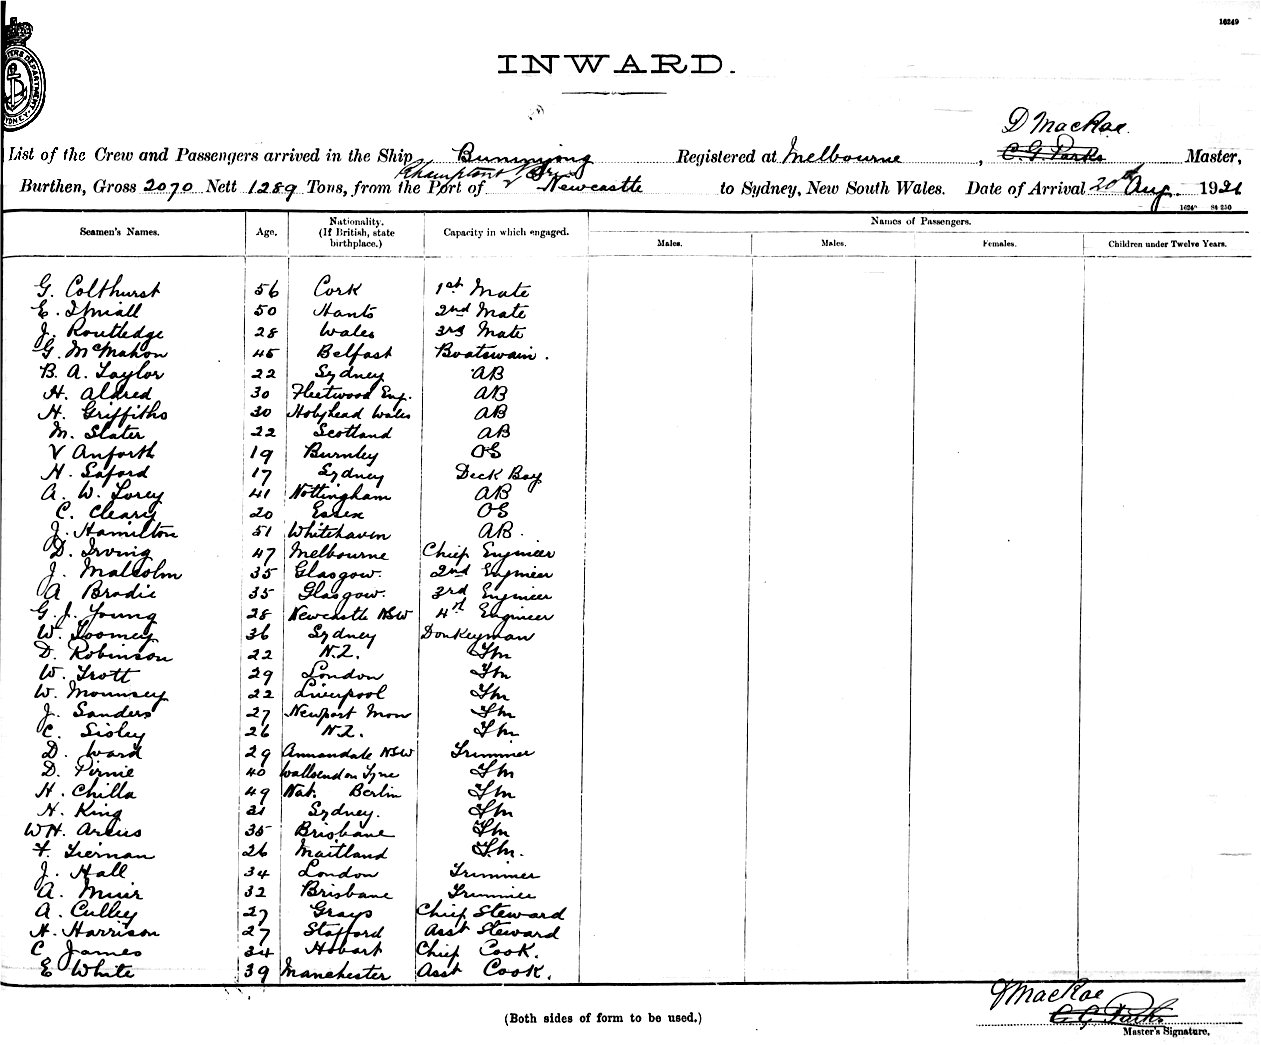 16249
INWARD.
D MacRae
List of the Crew and Passengers arrived in the Ship Bunninyong Registered at Melbourne, C. G. Parks Master,
Burthen, Gross 2070 Nett 1289 Tons, from the Port of Newcastle to Sydney, New South Wales. Date of Arrival 20th Aug. 1921
Seamen's Names. Age. Nationality. (If British, state birthplace.) Capacity in which engaged. Names of Passengers.
Males. Males. Females. Children under Twelve Years.
G. Colthurst 56 Cork 1st Mate
E. 50 Hants 2nd Mate
J. Routledge 28 Wales 3rd Mate
G. McMahon 45 Belfast Boatswain.
B. A. Taylor 22 Sydney AB
H. Aldred 30 Fleetwood Eng. AB
H. Griffiths 30 Holyhead Wales AB
M. Slater 22 Scotland AB
V Anforth 19 Burnley OS
H. Saford 17 Sydney Deck Boy
A. W. Torey 41 Nottingham AB
C. Cleary 20 Essex OS
J. Hamilton 51 Whitehaven AB.
D. Irving 47 Melbourne Chief Engineer
J. Malcolm 35 Glasgow. 2nd Engineer
A Brodie 35 Glasgow. 3rd Engineer
G. J. Young 28 Newcastle NSW 4th Engineer
W. Toomey 36 Sydney Donkeyman
D. Robinson 22 N.Z. Fm
W. Trott 29 London Fm
W. Mounsey 22 Liverpool Fm
J. Sanders 27 Newport Mon Fm
C. Sisley 26 N.Z. Fm
D. Ward 29 Annandale NSW Trimmer
D. Pirnie 40 Wallsend on Tyne Fm
H. Chilla 49 Nat. Berlin Fm
H. King 31 Sydney. Fm
WH. Arcus 35 Brisbane Fm
F. Tiernan 26 Maitland Fm.
J. Hall 34 London Trimmer
A. Muir 32 Brisbane Trimmer
A. Culley 27 Grays Chief Steward
H. Harrison 27 Stafford Asst Steward
C James 34 Hobart Chief Cook.
E White 39 Manchester Asst Cook.
(Both sides of form to be used.)
D MacRae
C. G. Parks
Master's Signature.